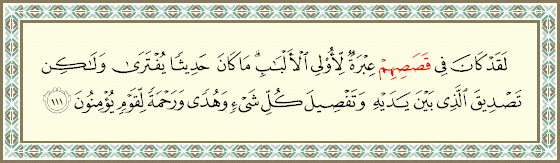 لَقَدْ كَانَ فِى قَصَصِهِمْ عِبْرَةٌ لِّأُو۟لِى ٱلْأَلْبَـٰبِ ۗ مَا كَانَ حَدِيثًا يُفْتَرَىٰ وَلَـٰكِن
تَصْدِيقَ ٱلَّذِى بَيْنَ يَدَيْهِ وَتَفْصِيلَ كُلِّ شَىْءٍ وَهُدًى وَرَحْمَةً لِّقَوْمٍ يُؤْمِنُونَ ١١١